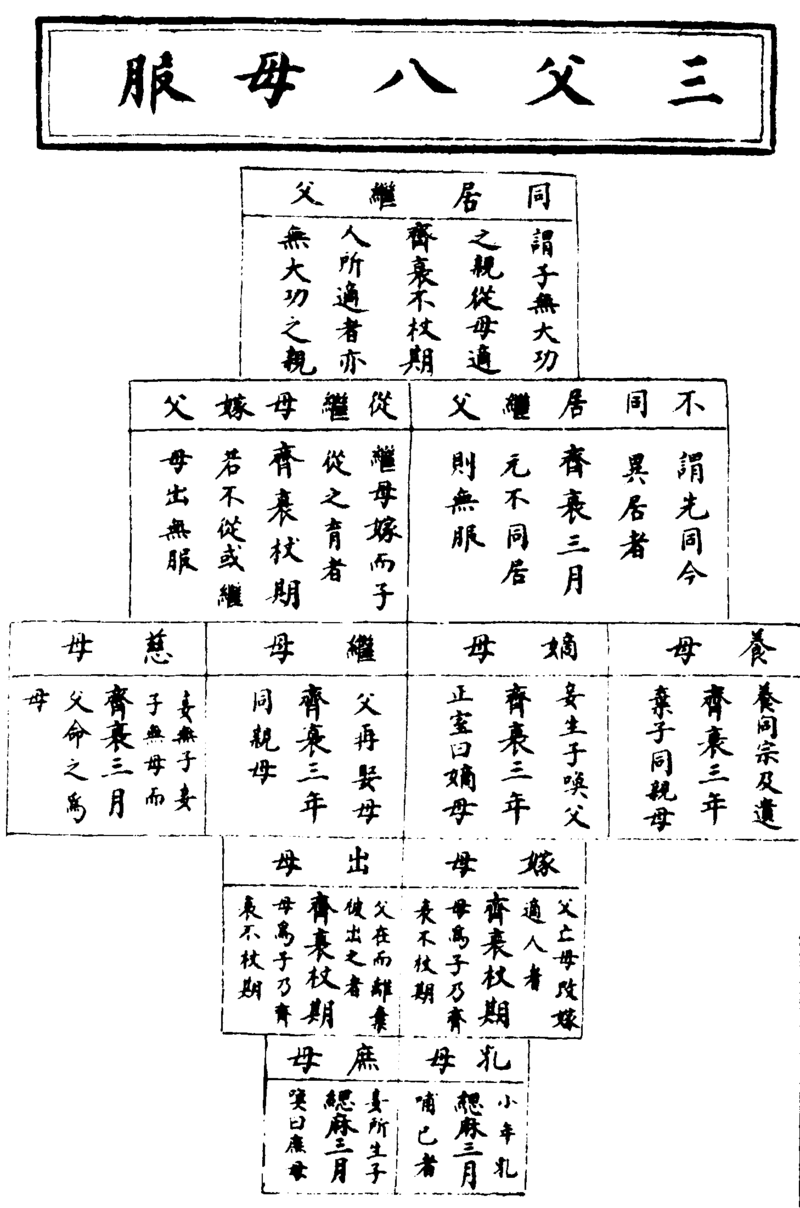 三父八母服
同居繼父
謂子無大功
之親從母適
齊衰不杖期
人所適者亦
無大功之親
不同居繼父
謂先同今
異居者
齊衰三月
元不同居
則無服
從繼母嫁父
繼母嫁而子
從之育者
齊衰杖期
若不從或繼
母出無服
養母
養同宗及遺
齊衰三年
棄子同親母
嫡母
妾生子喚父
齊衰三年
正室曰嫡母
繼母
父再娶母
齊衰三年
同親母
慈母
妾無子妾
子無母而
齊衰三月
父命之爲
母
嫁母
父亡母改嫁
適人者
齊衰杖期
母爲子乃齊
衰不杖期
出母
父在而離棄
彼出之者
齊衰杖期
母爲子乃齊
衰不杖期
乳母
小年乳
緦麻三月
哺己者
庶母
妾所生子
緦麻三月
喚曰庶母